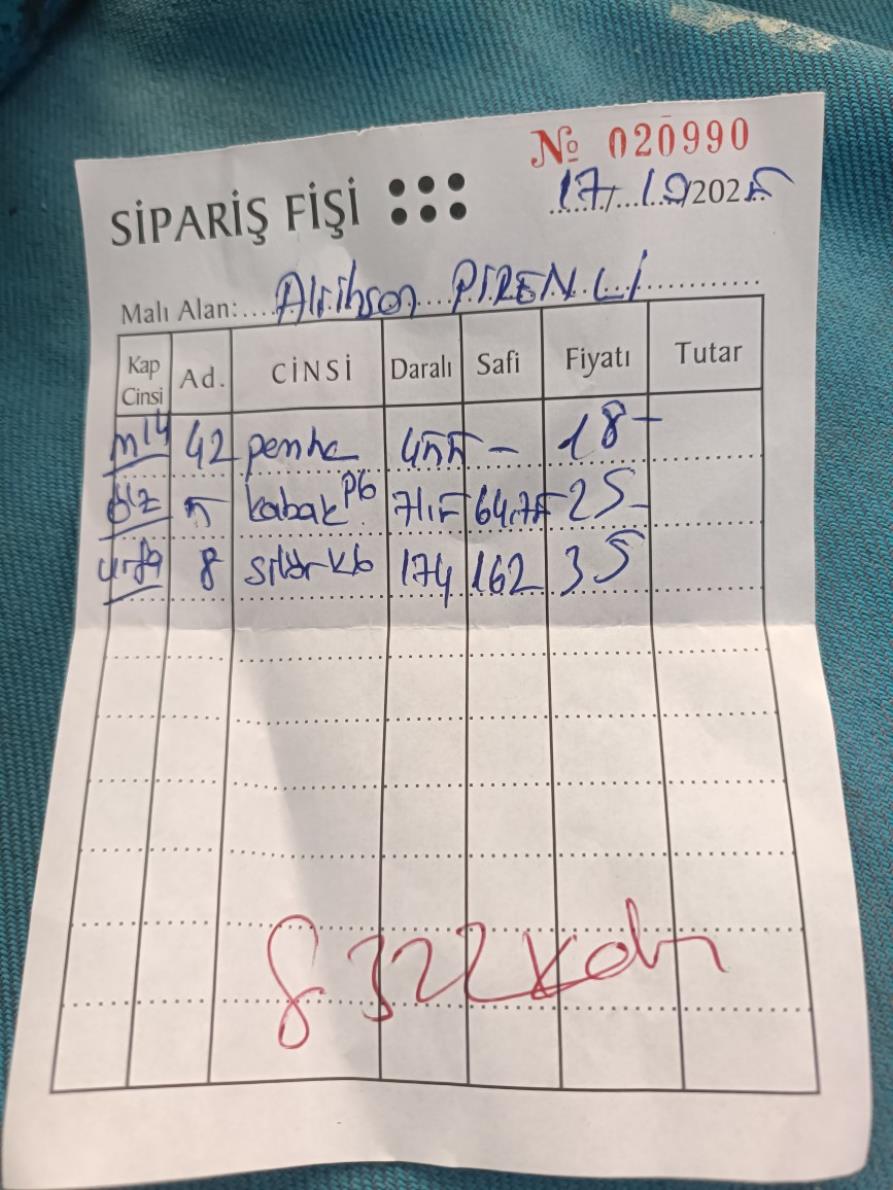 № 020990
SİPARİŞ FİŞİ
17/10/2025
Malı Alan: Aliihson PIRENLİ
Kap Cinsi Ad. CİNSİ Daralı Safi Fiyatı Tutar
m14 42 pembe 455 - 18-
5 kabak P6 71.5 64.75 25-
urfa 8 174 162 35
8322